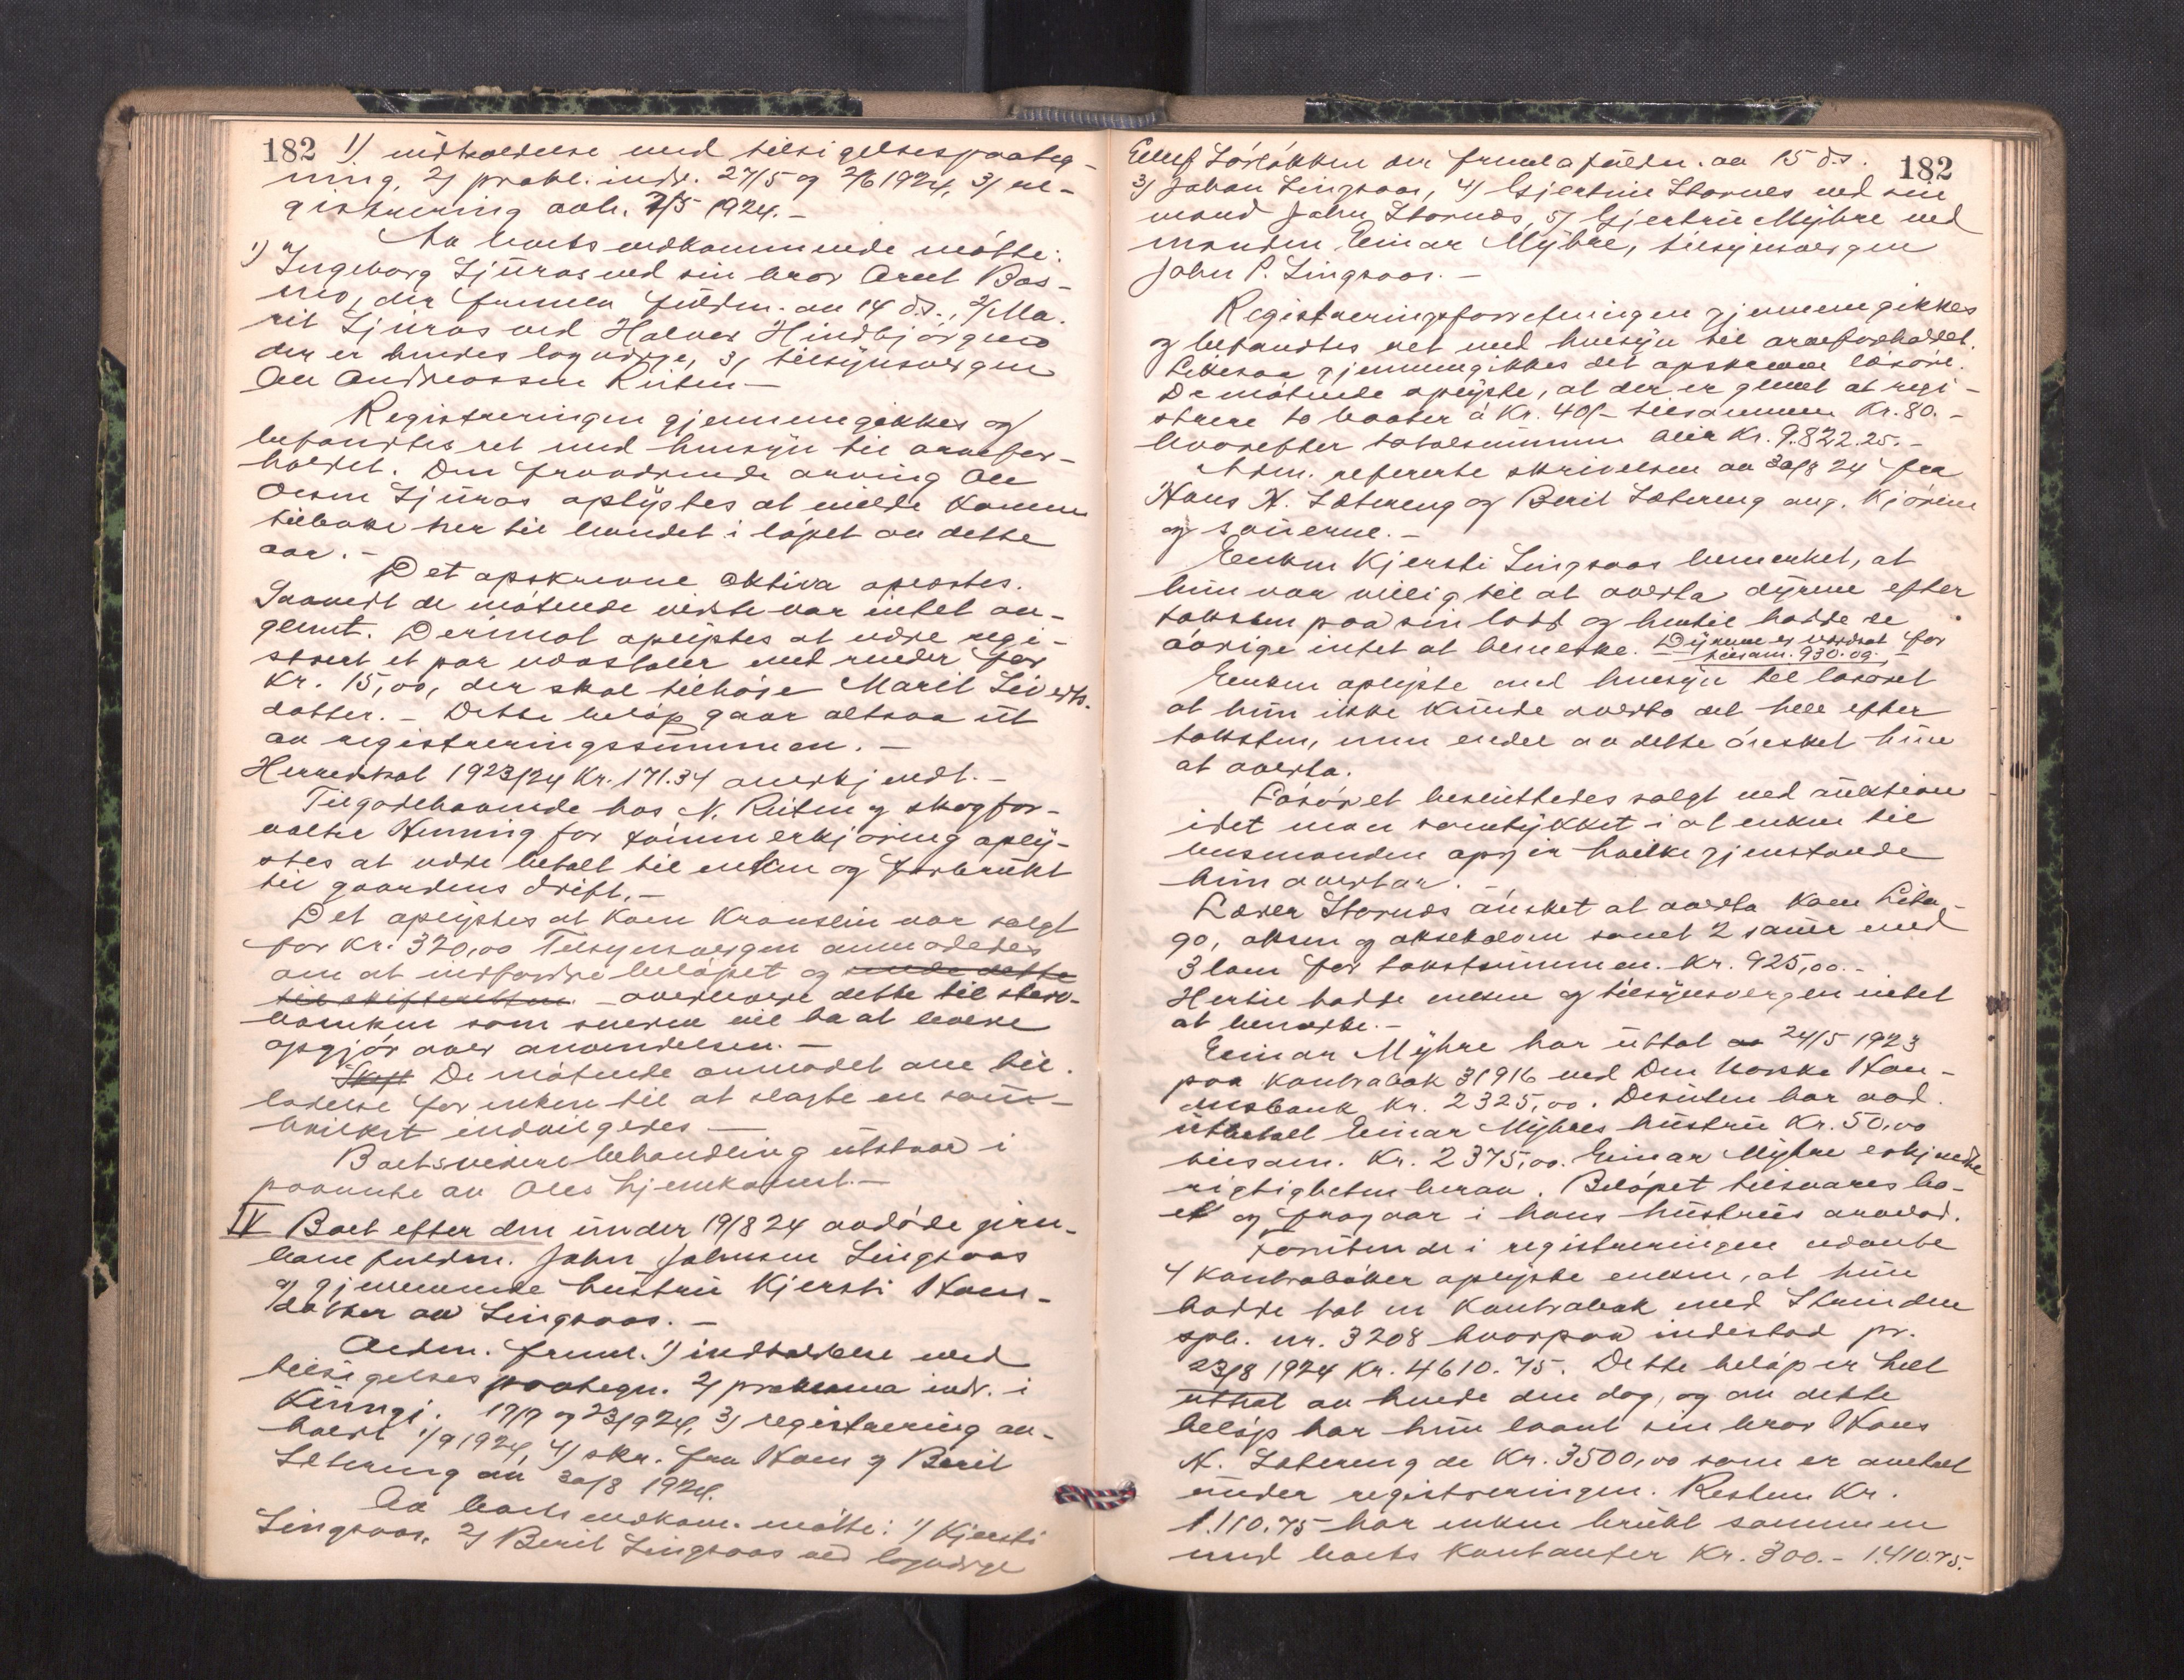 182 1) indkaldelse med tilsigelsespaateg-
ning, 2) prokl. indr. 27/5 og 2/6 1924, 3) re-
gistrering avh. 7/5 1924.-
Av boets vedkommende møtte:
1) Ingeborg Ljüras ved sin bror Arnt Bos-
mo, der fremla fuldm. av 14 d.s., 2) Ma-
rit Ljüras ved Halvor Hindbjørgmo
der er hendes lagverge, 3) tilsynsvergen
Ole Andreassen Riiten -
Registreringen gjennemgikkes og
befandtes ret med hensyn til arvefor-
holdet. Den fraværende arving Ole
Olsen Ljüras oplystes at vilde komme
tilbake her til landet i løpet av dette
aar.-
Det opskrevne aktiva oplæstes.
Saavidt de møtende visste var intet av-
glemt. Derimot oplystes at være regi-
strert et par vevstoler med render for
Kr. 15,00, der skal tilhøre Marit Siverts-
datter. - Dette beløp gaar altsaa üt
av registreringssummen.-
Herredskat 1923/24 Kr. 171.34 anerkjendt.-
Tilgodehavende hos N. Riiten og skogfor-
valter Henning for tømmerkjøring oply-
stes at være betalt til enken og forbrükt
til gaardens drift.-
Det oplystes at koen Kranslin var solgt
for Kr. 320,00 Tilsynsvergen anmodedes
om at indfordre beløpet og sende dette
til skifteretten - overlevere dette til sterv-
boenken som senere vil ha at levere
opgjør over anvendelsen.-
Skift De møtende anmodet om til-
ladelse for enken til at slagte en saü-
hvilket indvilgedes -
Boets videre behandling ütstaar i
paavente av Oles hjemkomst.-
IV Boet efter den ünder 19/8 24 avdøde gjen-
levende fuldm. John Johnsen Lingsaas
og gjenlevende hüstrü Kjersti Hans-
datter av Lingsaas.-
Adm. freml. 1) indkaldelse med
tilsigelsespaategn. 2) proklama indr. i
Künngj. 17/9 og 23/9 24, 3) registrering av-
holdt 1/9 1924, 4) skr. fra Hans og Berit
Sætereng av 30/8 1924.
Av boets vedkom. møtte: 1) Kjersti
Lingsaas, 2) Berit Lingsaas ved lagverge
182
Ellef Sørløkken der fremla fuldm. av 15 d.s.
3) Johan Lingsaas, 4) Gjertine Stornes ved sin
mand John Stornæs, 5) Gjertrü Myhre ved
manden Einar Myhre, tilsynsvergen
John P. Lingsaas.-
Registreringsforretningen gjennemgikkes
og befandtes ret med hensyn til arveforholdet.
Likesaa gjennemgikkes det opskrevne løsøre.
De møtende oplyste, at der er glemt at regi-
strere to baater à Kr. 40,- tilsammen Kr. 80.-
hvorefter totalsummen blir Kr. 9.822.25.-
Adm. refererte skrivelsen av 30/8 24 fra
Hans H. Sætereng og Berit Sætereng ang. kjørene
og sauerne.-
Enken Kjersti Lingsaas bemerket, at
hün var villig til at overta dyrene efter
taksten paa sin lodd og hertil hadde de
øvrige intet at bemerke. Dyrene er værdsat for
tilsam. 930.00,-
Enken oplyste med hensyn til løsøret
at hün ikke künde overta det hele efter
taksten, men endel av dette ønsket hün
at overta.
Løsøret beslüttedes solgt ved aüktion
idet man samtykket i at enken til
lensmanden opgir hvilke gjenstande
hün overtar.-
Lærer Stornæs ønsket at overta koen Lita-
go, oksen og oksekalven samt 2 sauer med
3 lam for takstsummen. Kr. 925,00.-
Hertil hadde enken og tilsynsvergen intet
at bemerke.-
Einar Myhre har üttat av 24/5 1923
paa kontrabok 31916 ved Den Norske Han-
delsbank Kr. 2325,00. Desüten har avd.
ütbetalt Einar Myhres hüstrü Kr. 50,00
tilsam. Kr. 2375,00. Einar Myhre erkjendte
rigtigheten herav. Beløpet tilsvares bo-
et og fragaar i hans hüstrüs arvelod.
Foruten de i registreringen nævnte
4 kontrabøker oplyste enken, at hün
hadde hat en kontrabok med Strinden
spb. nr. 3208 hvorpaa indestod pr.
23/8 1924 Kr. 4610.75. Dette beløp er helt
üttat av hende den dag, og av dette
beløp har hün laant sin bror Hans
H. Sætereng de Kr. 3500,00 som er anført
ünder registreringen. Resten Kr.
1.110.75 har enken brükt sammen
med boets kontanter Kr. 300.- 1.410.75.